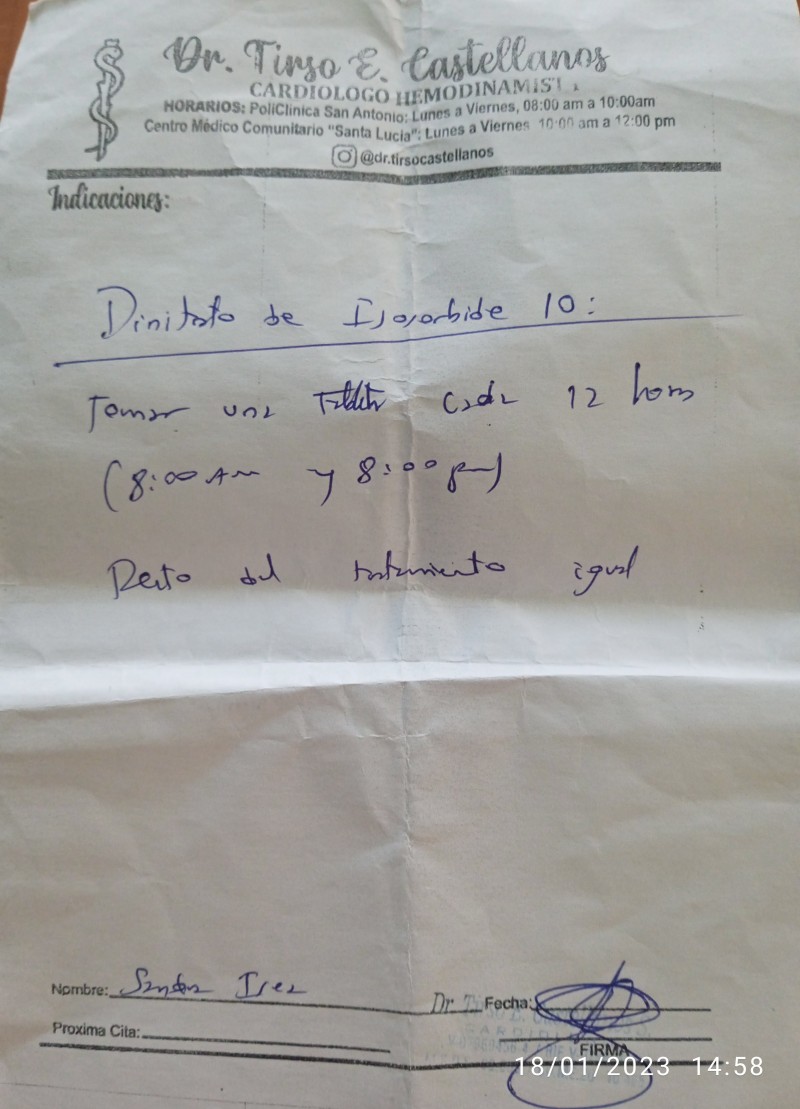 Dr. Tirso E. Castellanos
CARDIOLOGO HEMODINAMIST
HORARIOS: PoliClinica San Antonio: Lunes a Viernes, 08:00 am a 10:00am
Centro Médico Comunitario "Santa Lucia": Lunes a Viernes 10:00 am a 12:00 pm
@dr.tirsocastellanos
Indicaciones:
Dinitrato de Isosorbide 10:
Tomar una Tableta cada 12 horas
(8:00 Am y 8:00 pm)
Resto del tratamiento igual
Nombre: Sandra
Dr Fecha:
Proxima Cita:
FIRMA
18/01/2023 14:58